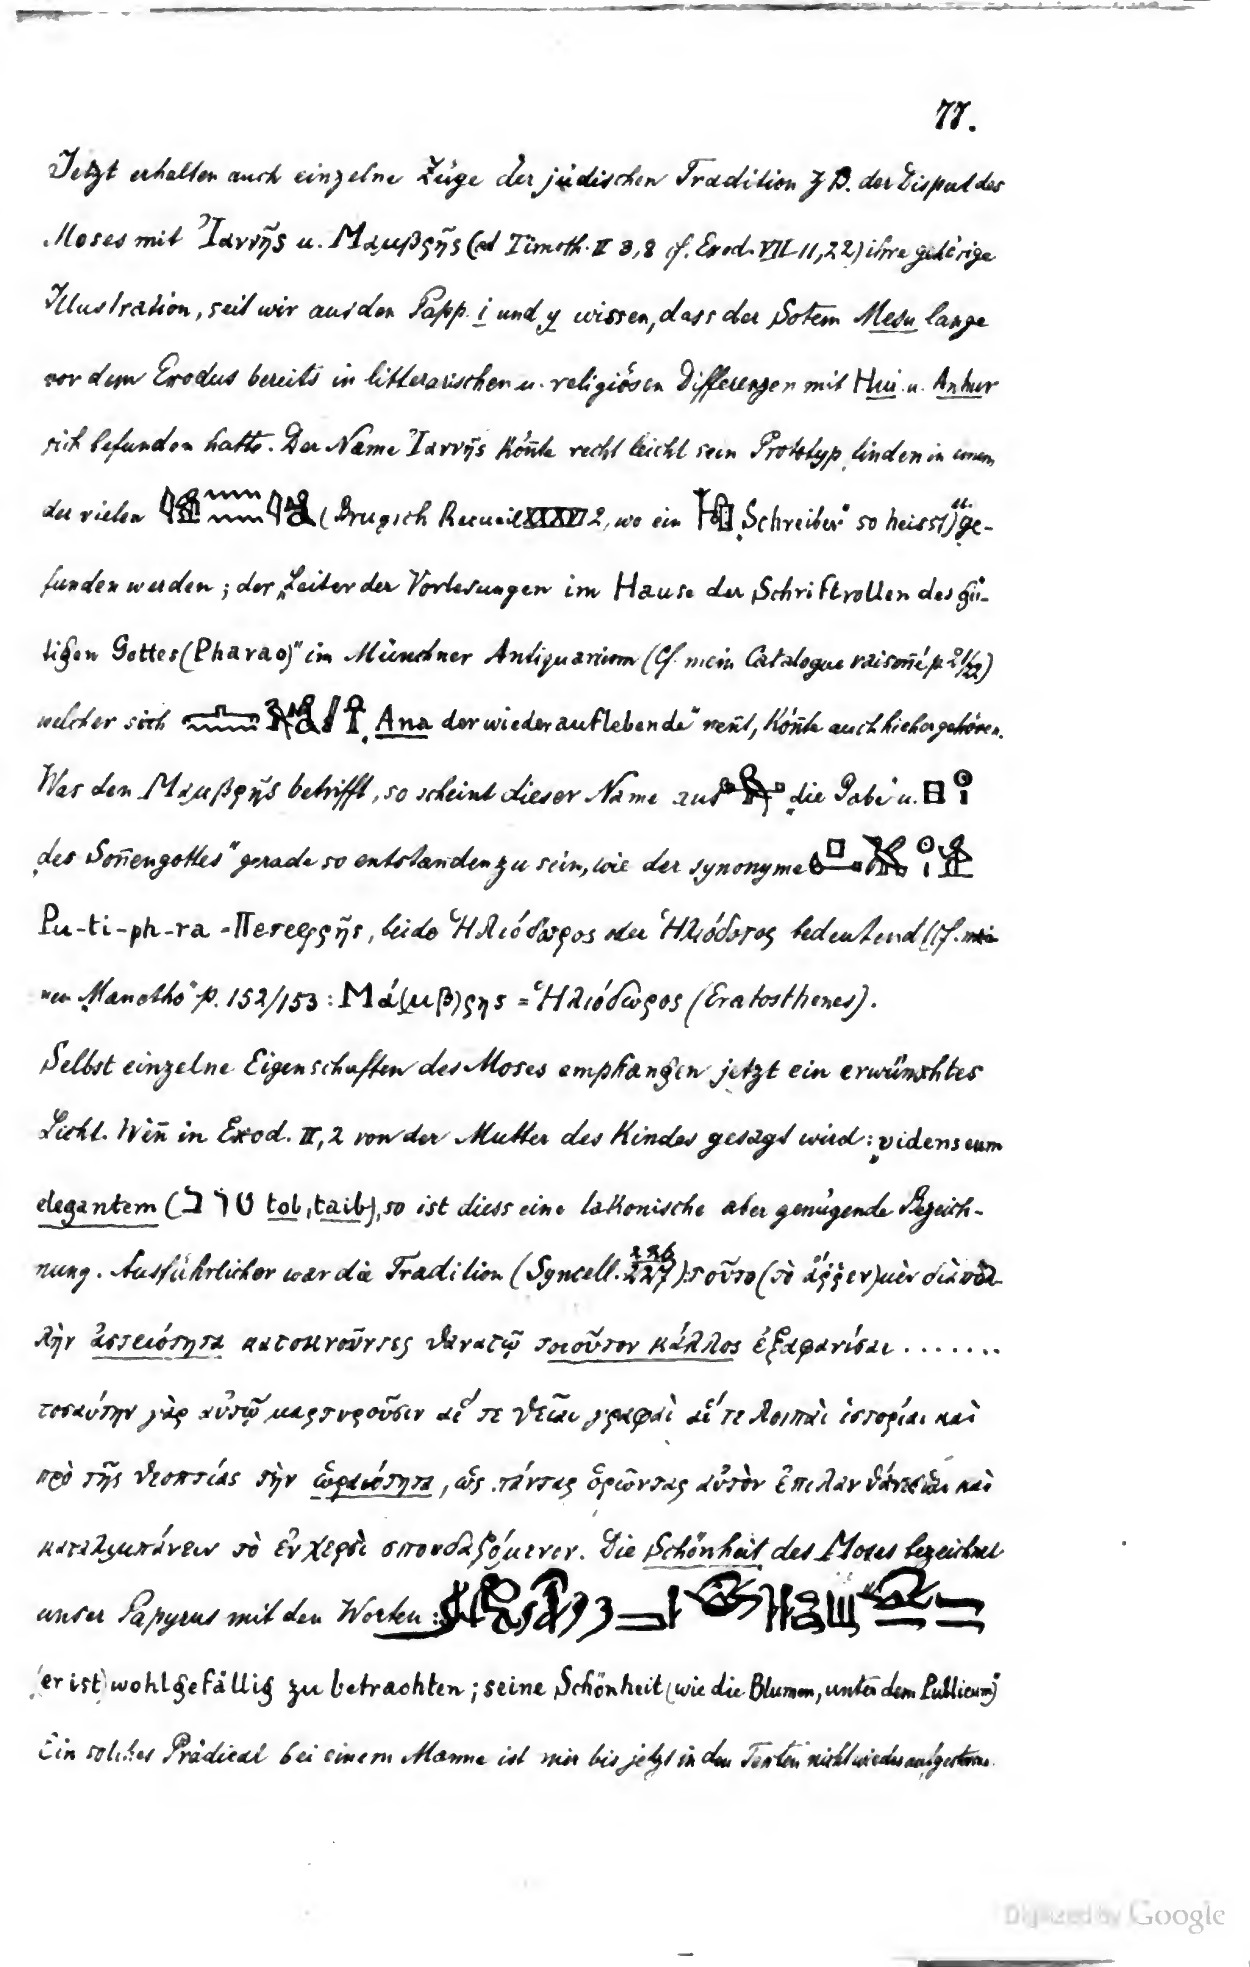 77.
Jetzt erhalten auch einzelne Züge der jüdischen Tradition z B. der Disput des
Moses mit Ἰαννῆς u. Μαμβρῆς (ad Timoth. II 3,8 cf. Exod. VII 11,22) ihre gehörige
Illustration, seit wir aus den Papp. i und y wissen, dass der Sotem Mesu lange
vor dem Exodus bereits in litterarischen u. religiösen Differenzen mit Hui u. Anhur
sich befunden hatte. Der Name Ἰαννῆς kön̄te recht leicht sein Prototyp finden in einem
der vielen (Brugsch Recueil 2, wo ein „Schreiber" so heisst) u. ge-
funden werden; der „Leiter der Vorlesungen im Hause der Schriftrollen des gü-
tigen Gottes (Pharao)" im Münchner Antiquarium (Cf. mein Catalogue raison̄é p 21/22)
welcher sich „Ana der wiederauflebende" nen̄t, kön̄te auch hieher gehören.
Was den Μαμβρῆς betrifft, so scheint dieser Name aus „die Gabe" u.
„des Son̄engottes" gerade so entstanden zu sein, wie der synonyme
Pu-ti-ph-ra = Πετεφρῆς, beide Ἡλιόδωρος oder Ἡλιόδοτος bedeutend (Cf. mei-
nen „Manetho" p. 152/153: Μά(μβ)ρης = Ἡλιόδωρος (Eratosthenes).
Selbst einzelne Eigenschaften des Moses empfangen jetzt ein erwünschtes
Licht. Wen̄ in Exod. II, 2 von der Mutter des Kindes gesagt wird: „videns eum
elegantem (טוב tob, taib), so ist diess eine lakonische aber genügende Bezeich-
nung. Ausführlicher war die Tradition (Syncell. 226 227): τοῦτο (τὸ ἄῤῥεν) μὲν διὰ πολ-
λὴν ἀστειότητα κατοκνοῦντες θανατῷ τοιοῦτον κάλλος ἐξαφανίσαι .......
τοσαύτην γὰρ αὐτῷ μαρτυροῦσιν αἵ τε θεῖαι γραφαὶ αἵ τε λοιπαὶ ἱστορίαι καὶ
πρὸ τῆς θεοπτίας τὴν ὡραιότητα, ὡς πάντας ὁρῶντας αὐτὸν ἐπιλανθάνεσθαι καὶ
καταλιμπάνειν τὸ ἐν χερσὶ σπουδαζόμενον. Die Schönheit des Moses bezeichnet
unser Papyrus mit den Worten:
„(er ist) wohlgefällig zu betrachten; seine Schönheit (wie die Blumen, unter dem Publicum)"
Ein solches Prädicat bei einem Manne ist mir bis jetzt in den Texten nicht wieder aufgestossen.
Digitized by Google